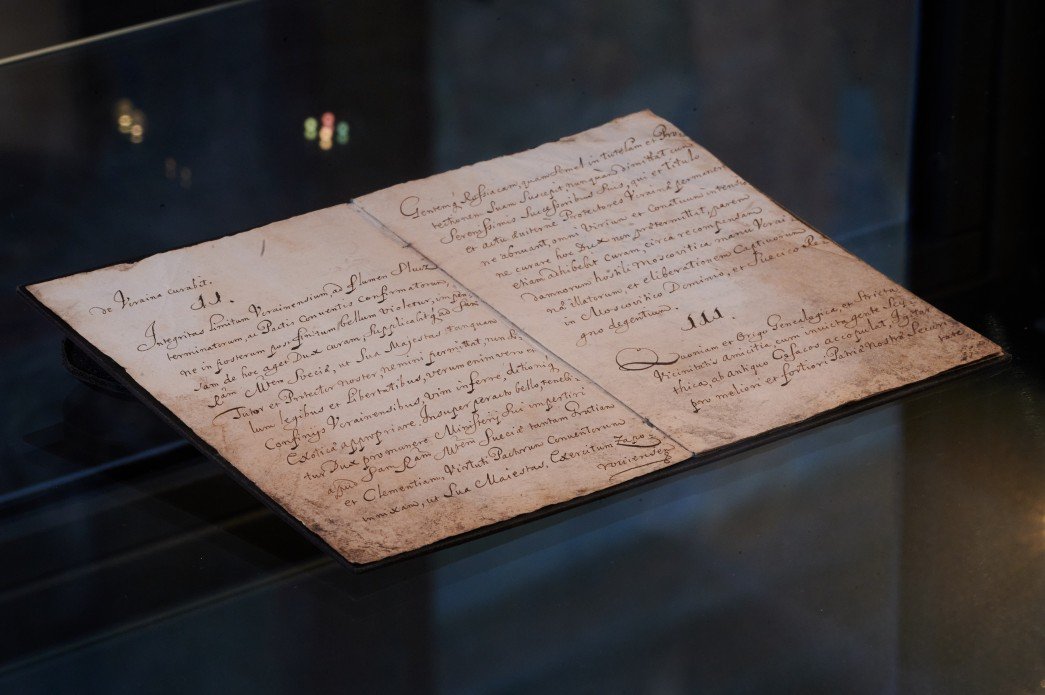 de Ucraina curabit.
II.
Integritas Limitum Ucrainensium, ad flumen Sluez
terminatorum, ac Pactis Conventis confirmatorum,
ne in posterum post finitum bellum violetur, in
Sam de hoc aget Dux curam, supplicabit Sam
Ram Mtem Sueciæ, ut Sua Majestas tanquam
Tutor et Protector noster ne mini permittat, nun
lum legibus et Libertatibus, verum enimvero et
Confinijs Ucrainensibus, vim inferre,
Exoticæ appropriare. Insuper peracto bello, tenebi-
tur Dux promovere Ministerij sui impertiri
apud San Ram Mtem Sueciæ tantam gratiam
et Clementiam, Virtuti Pactorum Conventorum
innixam, ut Sua Maiestas, Exercitum Zapo-
rouiensez
Gentemq Rossiacam, quam semel in tutelam et Pro-
tectionem Suam Suscepit nunquam dimittat cum
Serenissimis Successoribus Suis, qui et titulo
et actu diuturne Protectores Ucrainæ permanere
ne abnuant, omni virium et Conatuum intensi
ne curare hoc Dux non prætermittat, parem
etiam adhibebit Curam, circa recompensam
damnorum hostili Moscovitica manu Ucrai-
næ illatorum, et eliberationem Captivorum
in Moscovitico Dominio, et Suecico Re-
gno degentium.
III.
Quoniam et Origo Genealogica, et Stricta
Vicinitatis amicitia cum invicta gente
thica, ab antiquo Cosacos accopulat,
pro meliori et fortiori, Patriæ nostræ